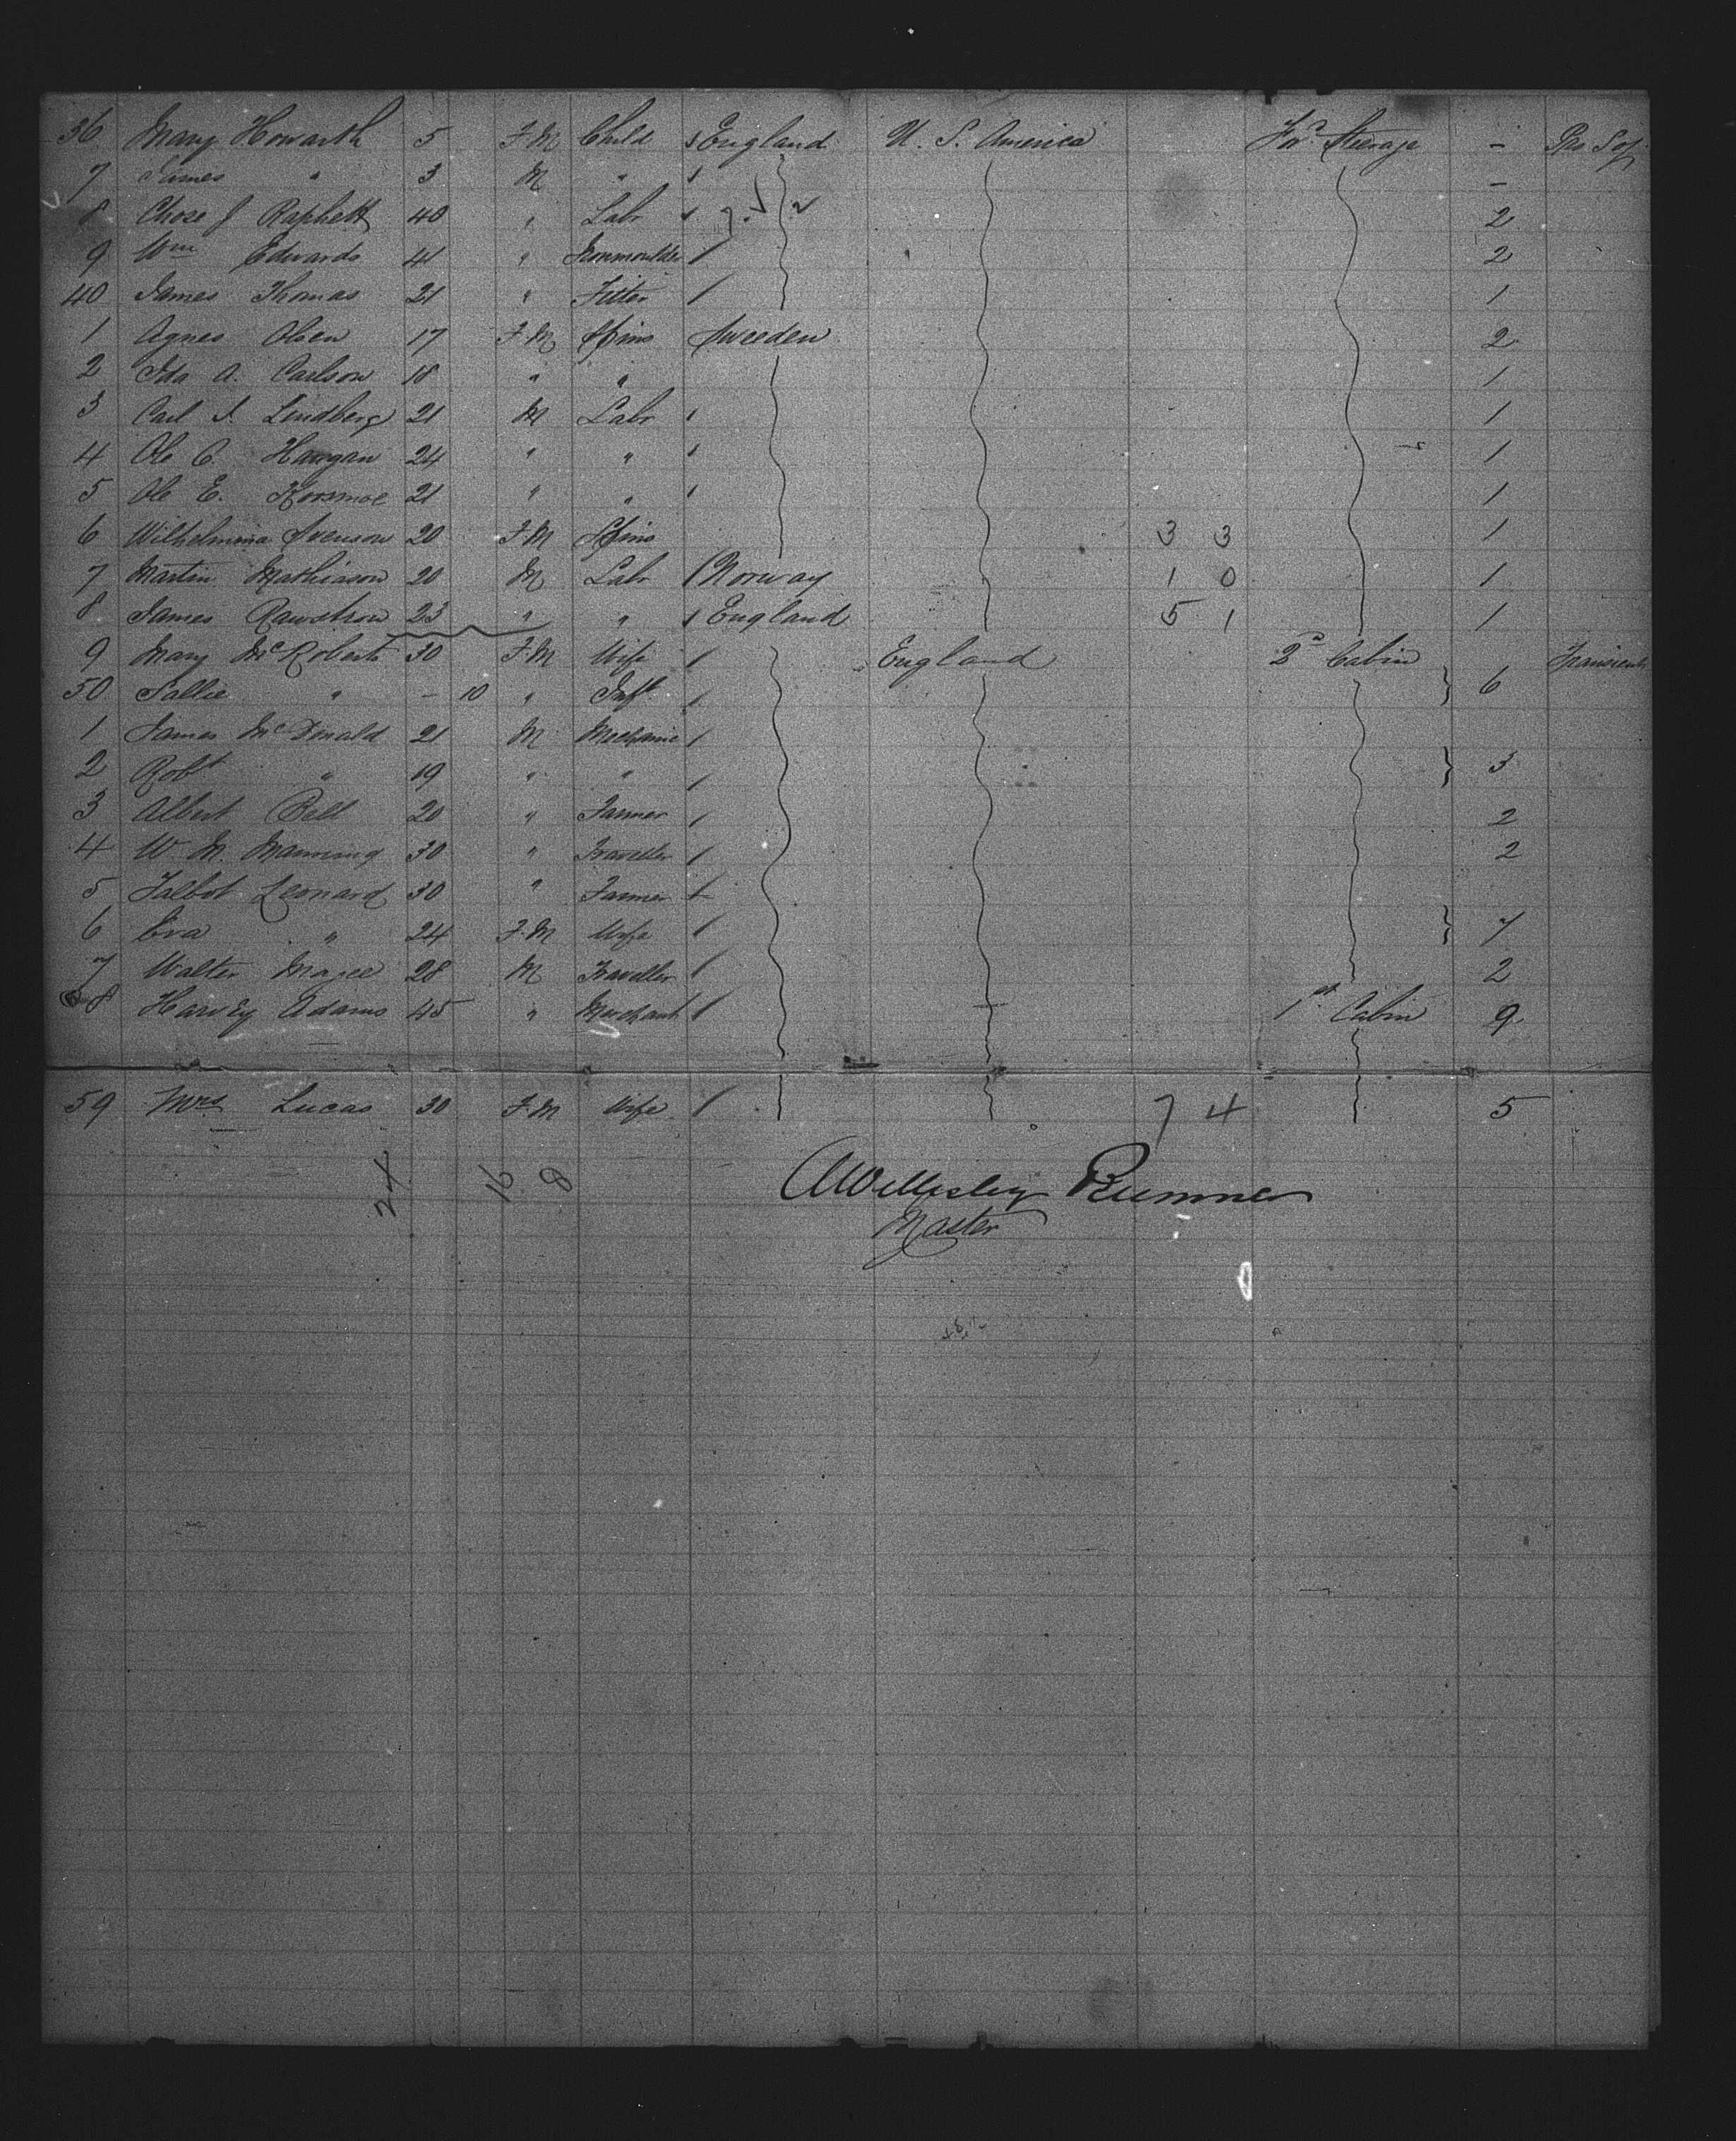 36 Mary Howarth 5 F.M Child England U. S. America For.d Steerage - Pro Soj
7 James " 3 M " -
8 Chose J Raphett 40 " Labr 2
9 Wm Edwards 41 " Ironmoulder 2
40 James Thomas 21 " Fitter 1
1 Agnes Olsen 17 F.M Spins Sweeden 2
2 Ida A. Carlson 18 " " 1
3 Carl I. Lindberg 21 M Labr 1
4 Ole C. Haugan 24 " " 1
5 Ole E. Korsmoe 21 " " 1
6 Wilhelmina Svenson 20 F.M Spins 3 3 1
7 Martin Mathiason 20 M Labr Norway 1 0 1
8 James Rawstron 23 " " England 5 1 1
9 Mary McRoberts 30 F.M Wife England 2d Cabin Transient
50 Sallie " - 10 " Inft 6
1 James McDonald 21 M Mechanic
2 Robt " 19 " " 3
3 Albert Bell 20 " Farmer 2
4 W. M. Manning 30 " Traveller 2
5 Talbot Leonard 30 " Farmer
6 Eva " 24 F.M Wife 7
7 Walter Magee 28 M Traveller 2
8 Harvey Adams 45 " Merchant 1st Cabin 9
59 Mrs Lucas 30 F.M Wife 7 4 5
24 16 8
AWellesley Bumner
Master